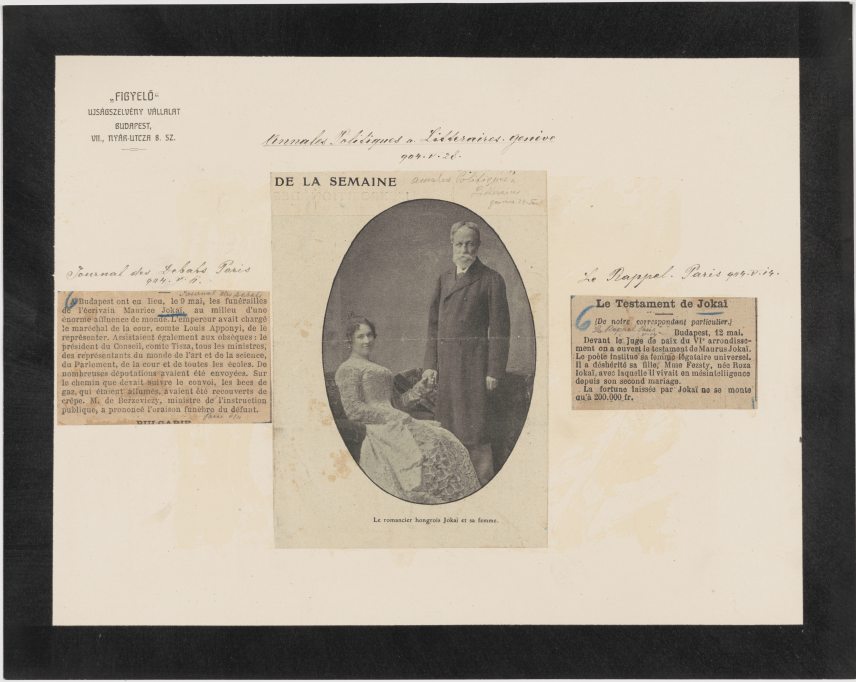 „FIGYELŐ“
UJSÁGSZELVÉNY VÁLLALAT
BUDAPEST,
VII., NYÁR-UTCZA 8. SZ.
Annales Politiques a. Litteraires. Genève
904. V. 28.
DE LA SEMAINE
Le romancier hongrois Jokai et sa femme.
Journal des Debats Paris
904. V.
6
Budapest ont eu lieu, le 9 mai, les funérailles
de l'écrivain Maurice Jokai, au milieu d'une
énorme affluence de monde. L'empereur avait chargé
le maréchal de la cour, comte Louis Apponyi, de le
représenter. Assistaient également aux obsèques: le
président du Conseil, comte Tisza, tous les ministres,
des représentants du monde de l'art et de la science,
du Parlement, de la cour et de toutes les écoles. De
nombreuses députations avaient été envoyées. Sur
le chemin que devait suivre le convoi, les becs de
gaz, qui étaient allumés, avaient été recouverts de
crêpe. M. de Berzeviczy, ministre de l'instruction
publique, a prononcé l'oraison funèbre du défunt.
BULGARIE
Le Rappel - Paris 904. V. 14.
6
Le Testament de Jokaï
(De notre correspondant particulier.)
Budapest, 12 mai.
Devant le Juge de paix du VIe arrondisse-
ment on a ouvert le testament de Maurus Jokaï.
Le poète institue sa femme légataire universel.
Il a déshérité sa fille, Mme Feszty, née Roza
Jokaï, avec laquelle il vivait en mésintelligence
depuis son second mariage.
La fortune laissée par Jokaï ne se monte
qu'à 200.000 fr.